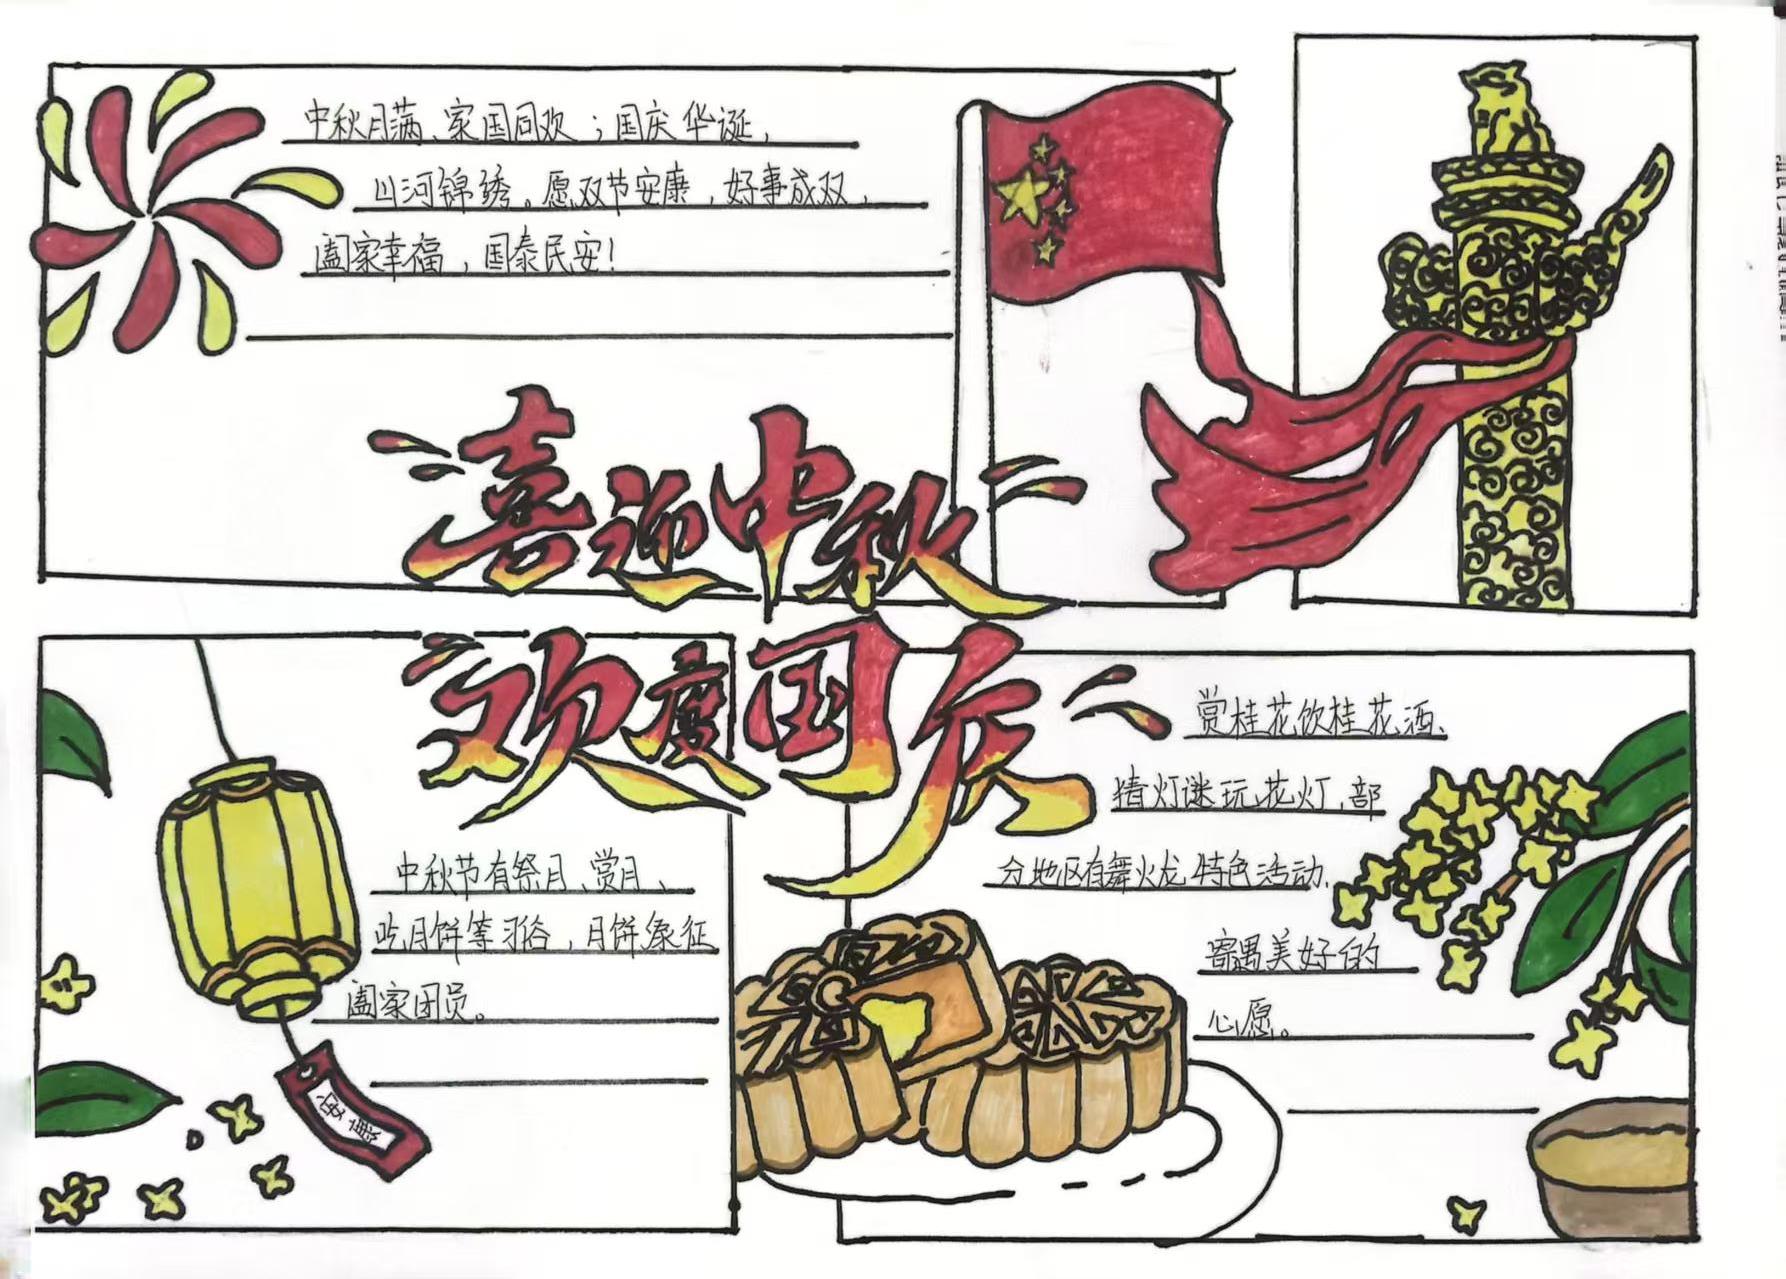 中秋月满、家国同欢；国庆华诞，
山河锦绣。愿双节安康，好事成双，
阖家幸福，国泰民安！
喜迎中秋
欢度国庆
中秋节有祭月、赏月、
吃月饼等习俗，月饼象征
阖家团员。
安康
赏桂花饮桂花酒、
猜灯谜玩花灯，部
分地区有舞火龙特色活动，
寄遇美好的
心愿。